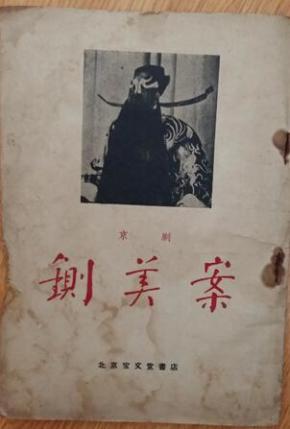 京剧
鍘美案
北京宝文堂書店